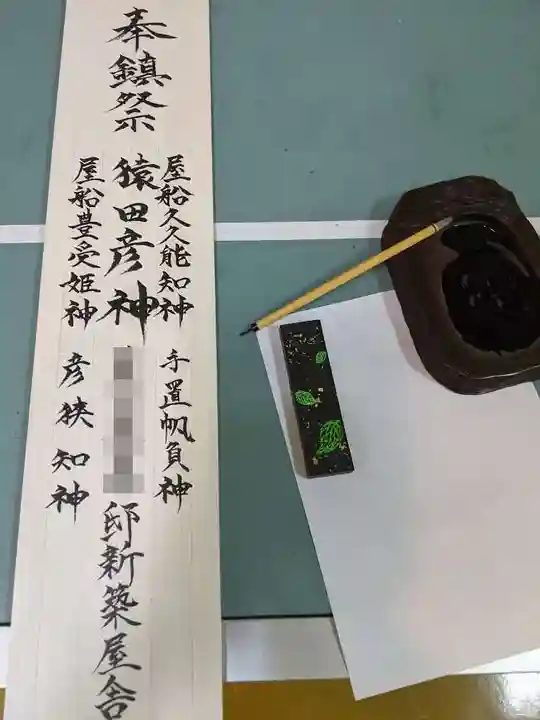 奉鎮祭
屋船久久能知神 手置帆負神
猿田彦神
邸新築屋舎
屋船豊受姫神 彦狭知神